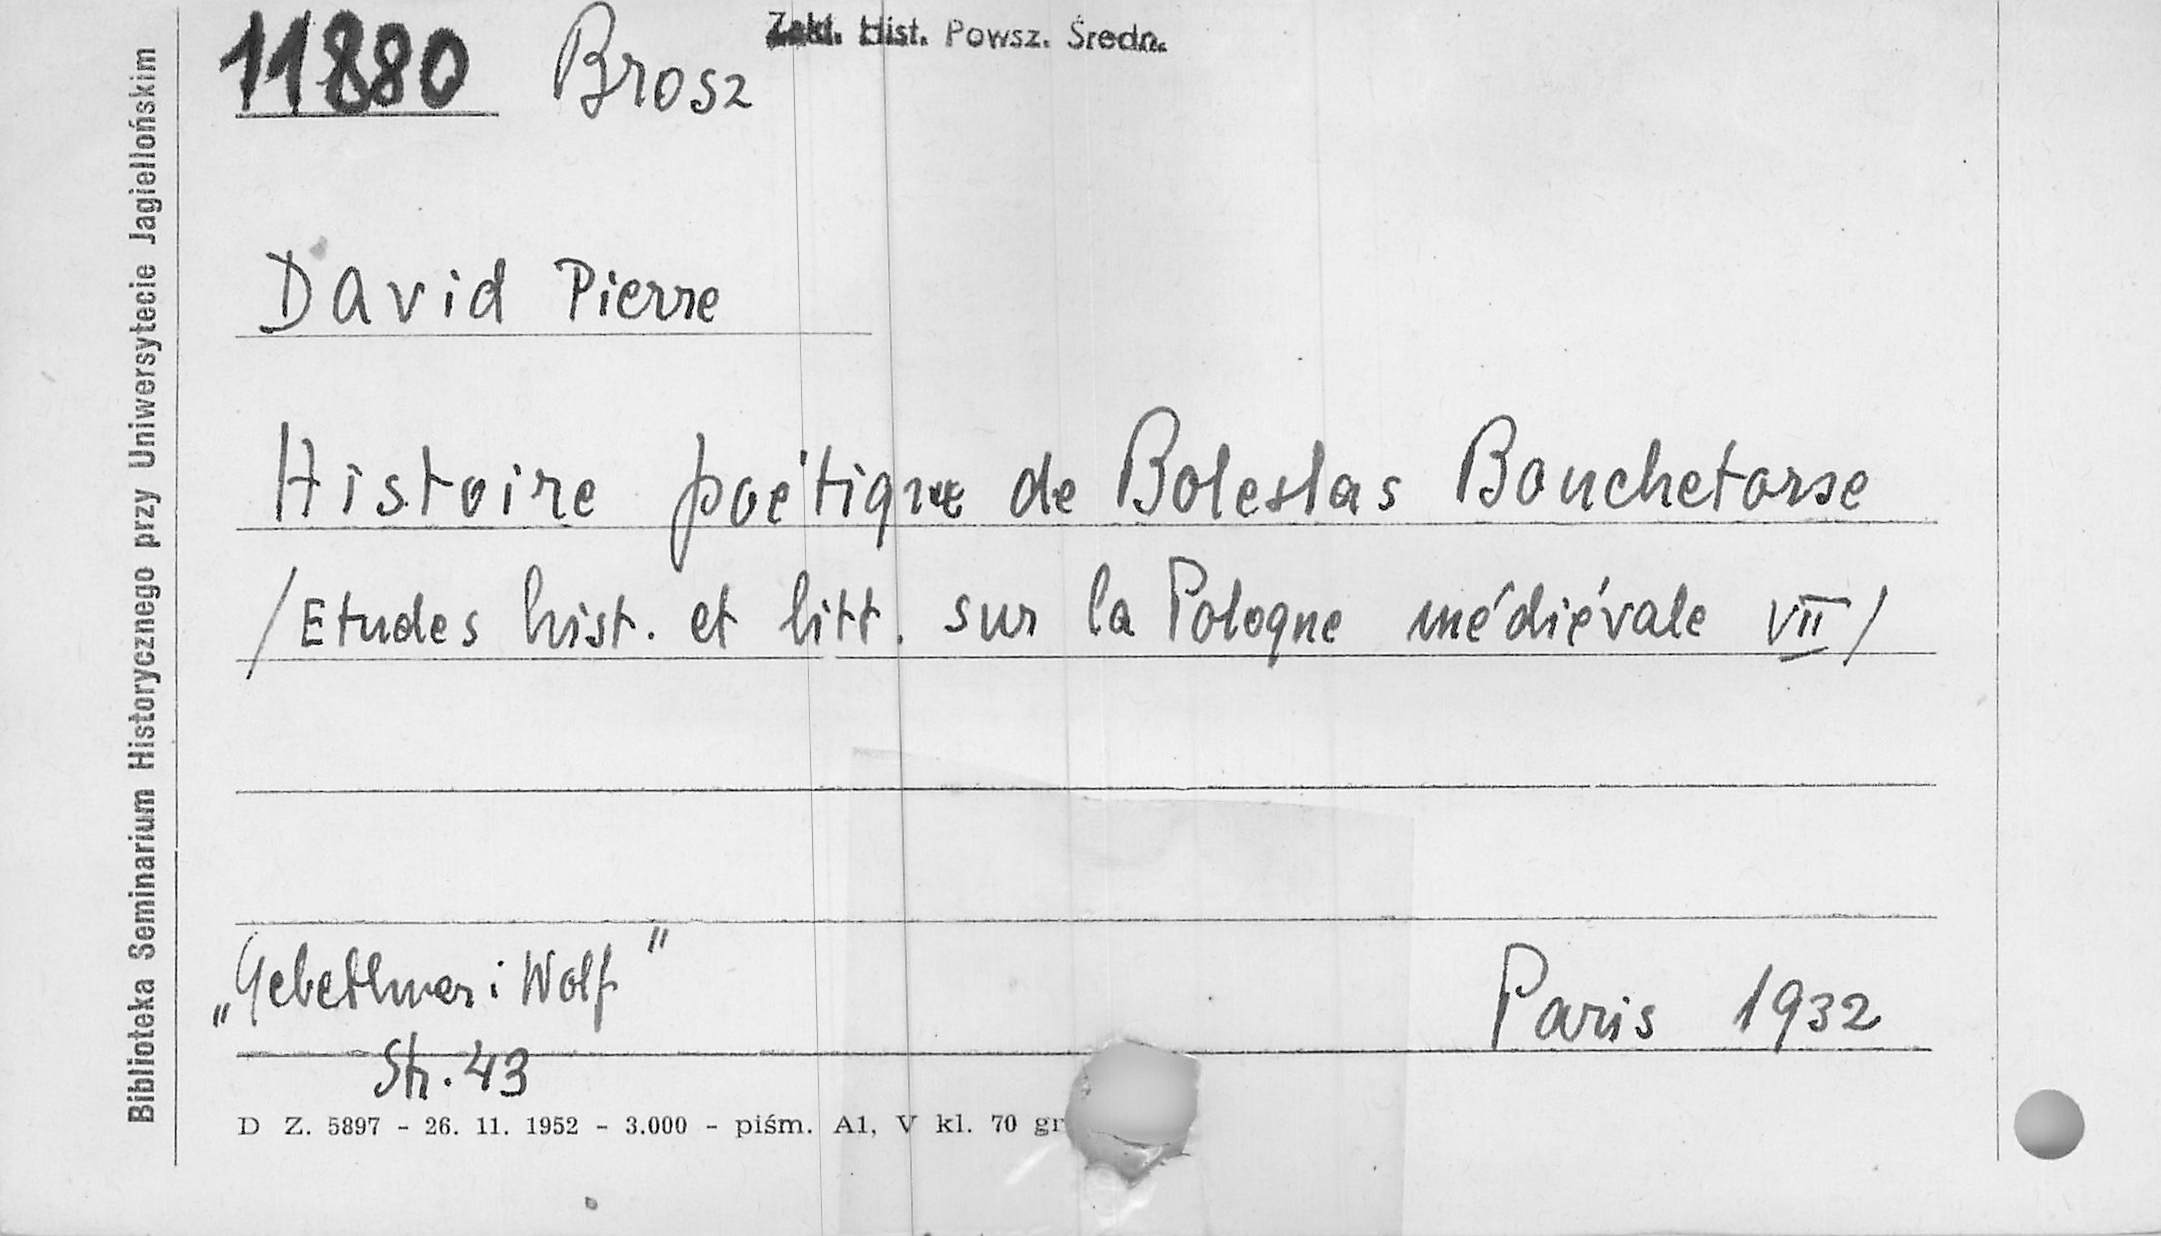 11880 Brosz
Zakl. Hist. Powsz. Średn.
David Pierre
Histoire poétique de Boleslas Bouchetorse
/Etudes hist. et litt. sur la Pologne médiévale VII/
„Gebethner i Wolf"
Str. 43
Paris 1932
D Z. 5897 - 26. 11. 1952 - 3.000 - piśm. A1, V kl. 70 gr
Biblioteka Seminarium Historycznego przy Uniwersytecie Jagiellońskim